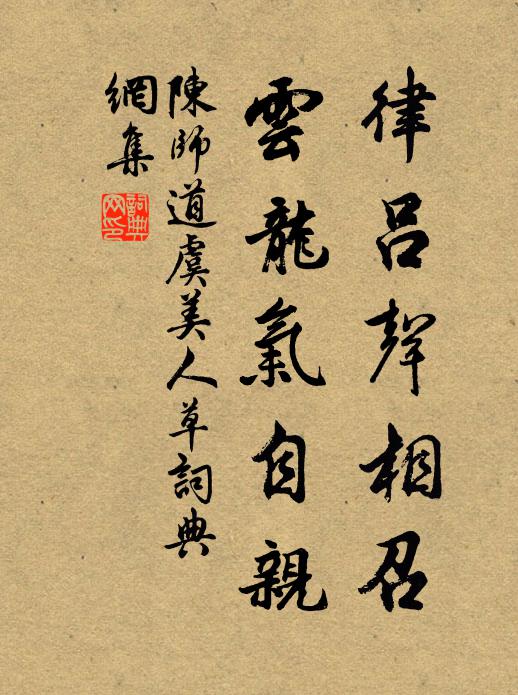 律呂聲相召
雲龍氣自親
陳師道虞美人草詞典
網集
詞典
网印